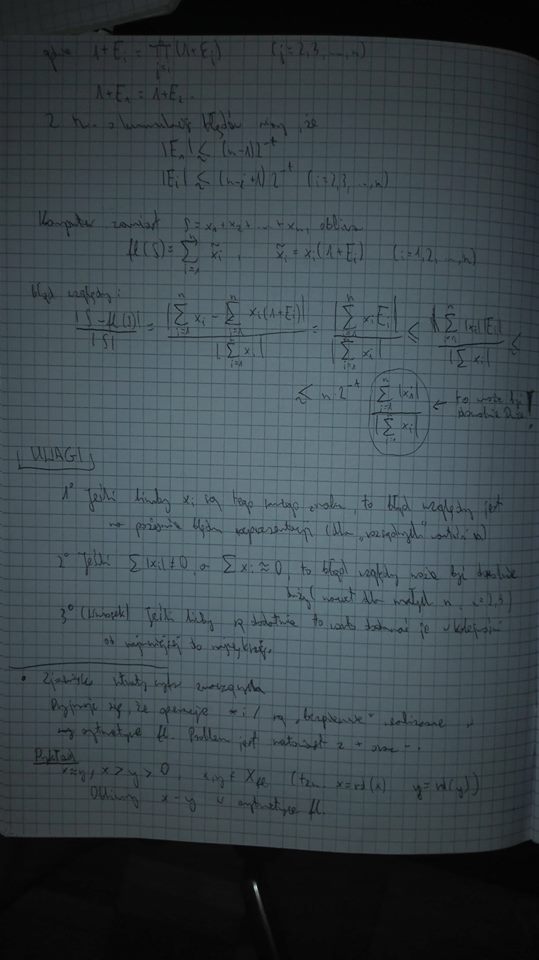 gdzie 1+E_i = ∏_{j=i}^{n} (1+ε_j) (j=2,3,...,n)
1+E_1 = 1+E_2.
Z tw. o kumulacji błędów mamy, że
|E_1| ≲ (n-1)2^{-t}
|E_i| ≲ (n-i+1)2^{-t} (i=2,3,...,n)
Komputer zamiast S = x_1+x_2+...+x_n, oblicza
fl(S) = ∑_{i=1}^{n} x̃_i, x̃_i = x_i(1+E_i) (i=1,2,...,n)
Błąd względny:
|S-fl(S)|/|S| = |∑_{i=1}^{n} x_i - ∑_{i=1}^{n} x_i(1+E_i)|/|∑_{i=1}^{n} x_i| = |∑_{i=1}^{n} x_i E_i|/|∑_{i=1}^{n} x_i| ≤ ∑_{i=1}^{n} |x_i||E_i|/|∑ x_i| ≲
≲ n·2^{-t} ∑_{i=1}^{n} |x_i|/|∑_{i=1}^{n} x_i| ← to może być
dowolnie duże!
UWAGI
1° Jeśli liczby x_i są tego samego znaku, to błąd względny jest
na poziomie błędu reprezentacji (dla „rozsądnych" wartości n)
2° Jeśli ∑|x_i| ≠ 0, a ∑ x_i ≈ 0, to błąd względny może być dowolnie
duży (nawet dla małych n, n=2,3)
3° (Wniosek) Jeśli liczby są dodatnie to warto dodawać je w kolejności
od najmniejszej do największej.
• Zjawisko utraty cyfr znaczących
Przyjmuje się, że operacje * i / są „bezpieczne" realizowane w
arytmetyce fl. Problem jest natomiast z + oraz -.
Przykład
x≈y, x>y>0, x,y ∈ X_fl (tzn. x=rd(x) y=rd(y))
Obliczmy x-y w arytmetyce fl.